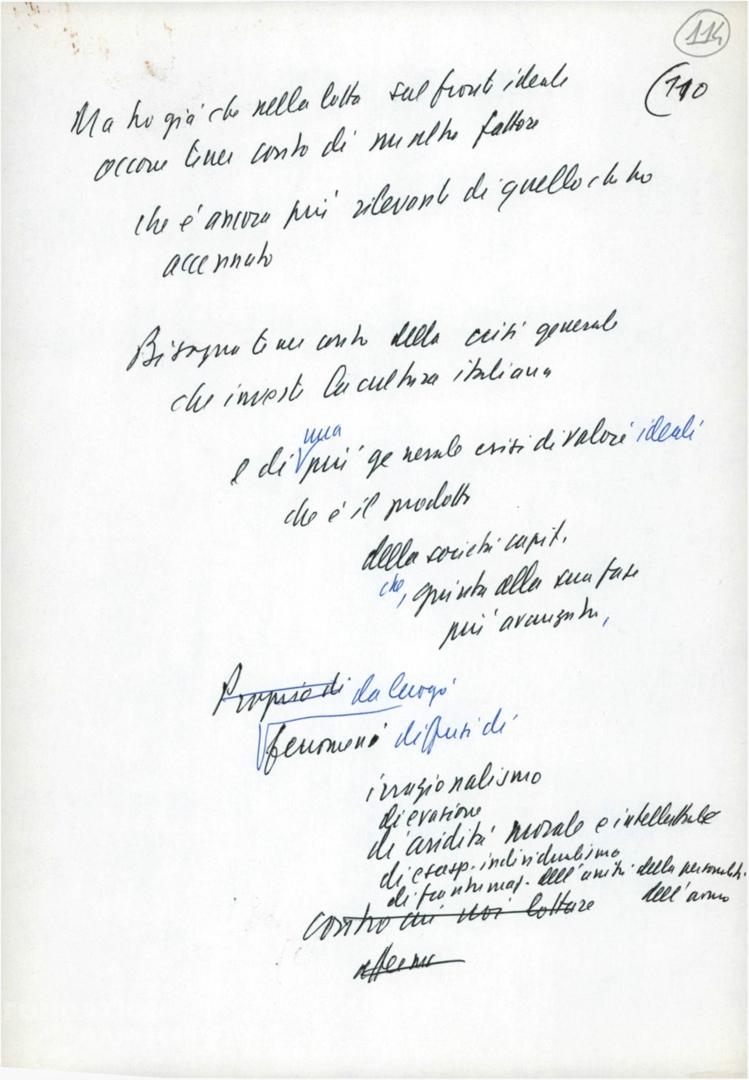 114
(110
Ma ho già che nella lotta sul fronte ideale
occorre tener conto di un altro fattore
che è ancora più rilevante di quello che ho
accennato
Bisogna tener conto della crisi generale
che investe la cultura italiana
e di una più generale crisi di valori ideali
che è il prodotto
della società capit.
che, giunta alla sua fase
più avanzata,
Proprio di dà luogo a
fenomeni diffusi di
irrazionalismo
di evasione
di aridità morale e intellettuale
di esasp. individualismo
di frantumaz. dell'unità della personalità
dell'uomo
contro cui noi lottare